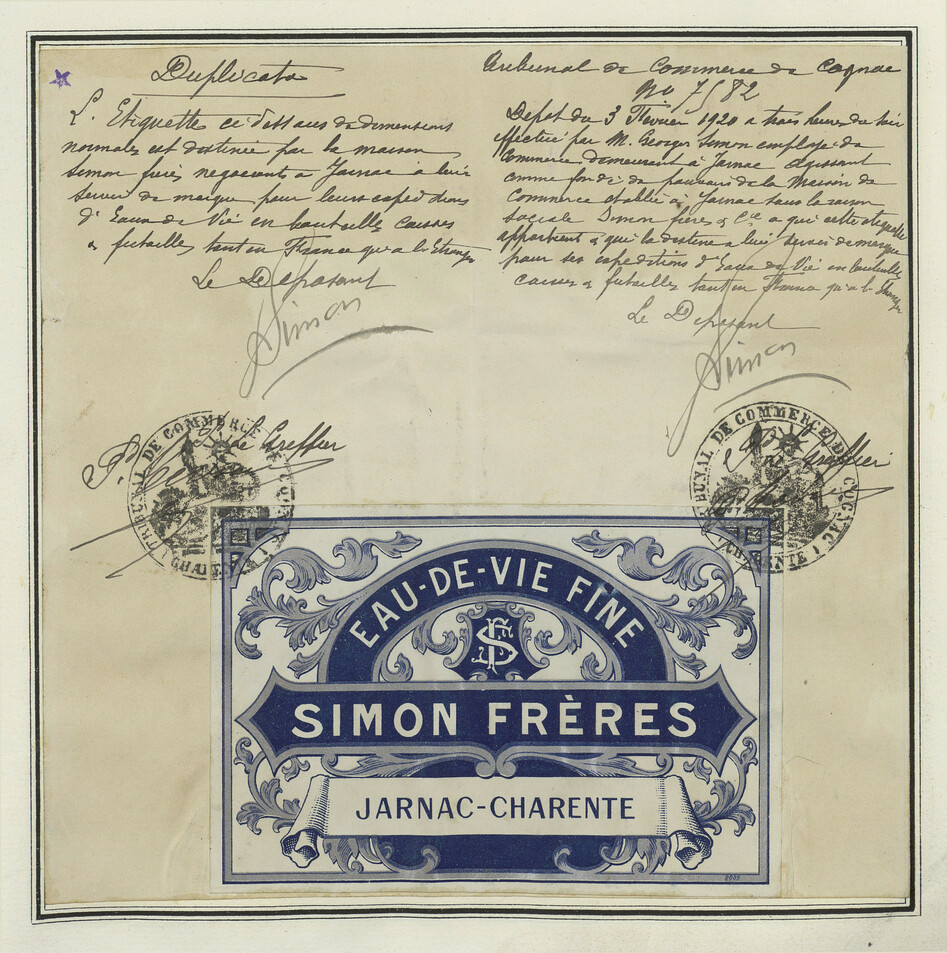 Duplicata
L'Etiquette ci dessous de dimensions
normales est destinée par la maison
Simon frères negociants a Jarnac a leur
servir de marque pour leurs expeditions
d'Eaux de Vie en bouteilles caisses
& futailles tant en France qu'a l'Etranger
Le Déposant
Simon
P. le Greffier
Tribunal de Commerce de Cognac
No 7582
Depot du 3 Février 1920 a trois heures du soir
effectué par M. Georges Simon employé de
Commerce demeurant à Jarnac agissant
comme fondé de pouvoirs de la Maison de
Commerce etablie a Jarnac sous la raison
sociale Simon frères & Cie a qui cette etiquette
appartient & qui la destine a lui servir de marque
pour ses expeditions d'Eaux de Vie en bouteilles
caisses & futailles tant en France qu'a l'Etranger
Le Deposant
Simon
Greffier
TRIBUNAL DE COMMERCE DE COGNAC
(CHARENTE)
TRIBUNAL DE COMMERCE DE COGNAC
(CHARENTE)
EAU-DE-VIE FINE
SF
SIMON FRÈRES
JARNAC-CHARENTE